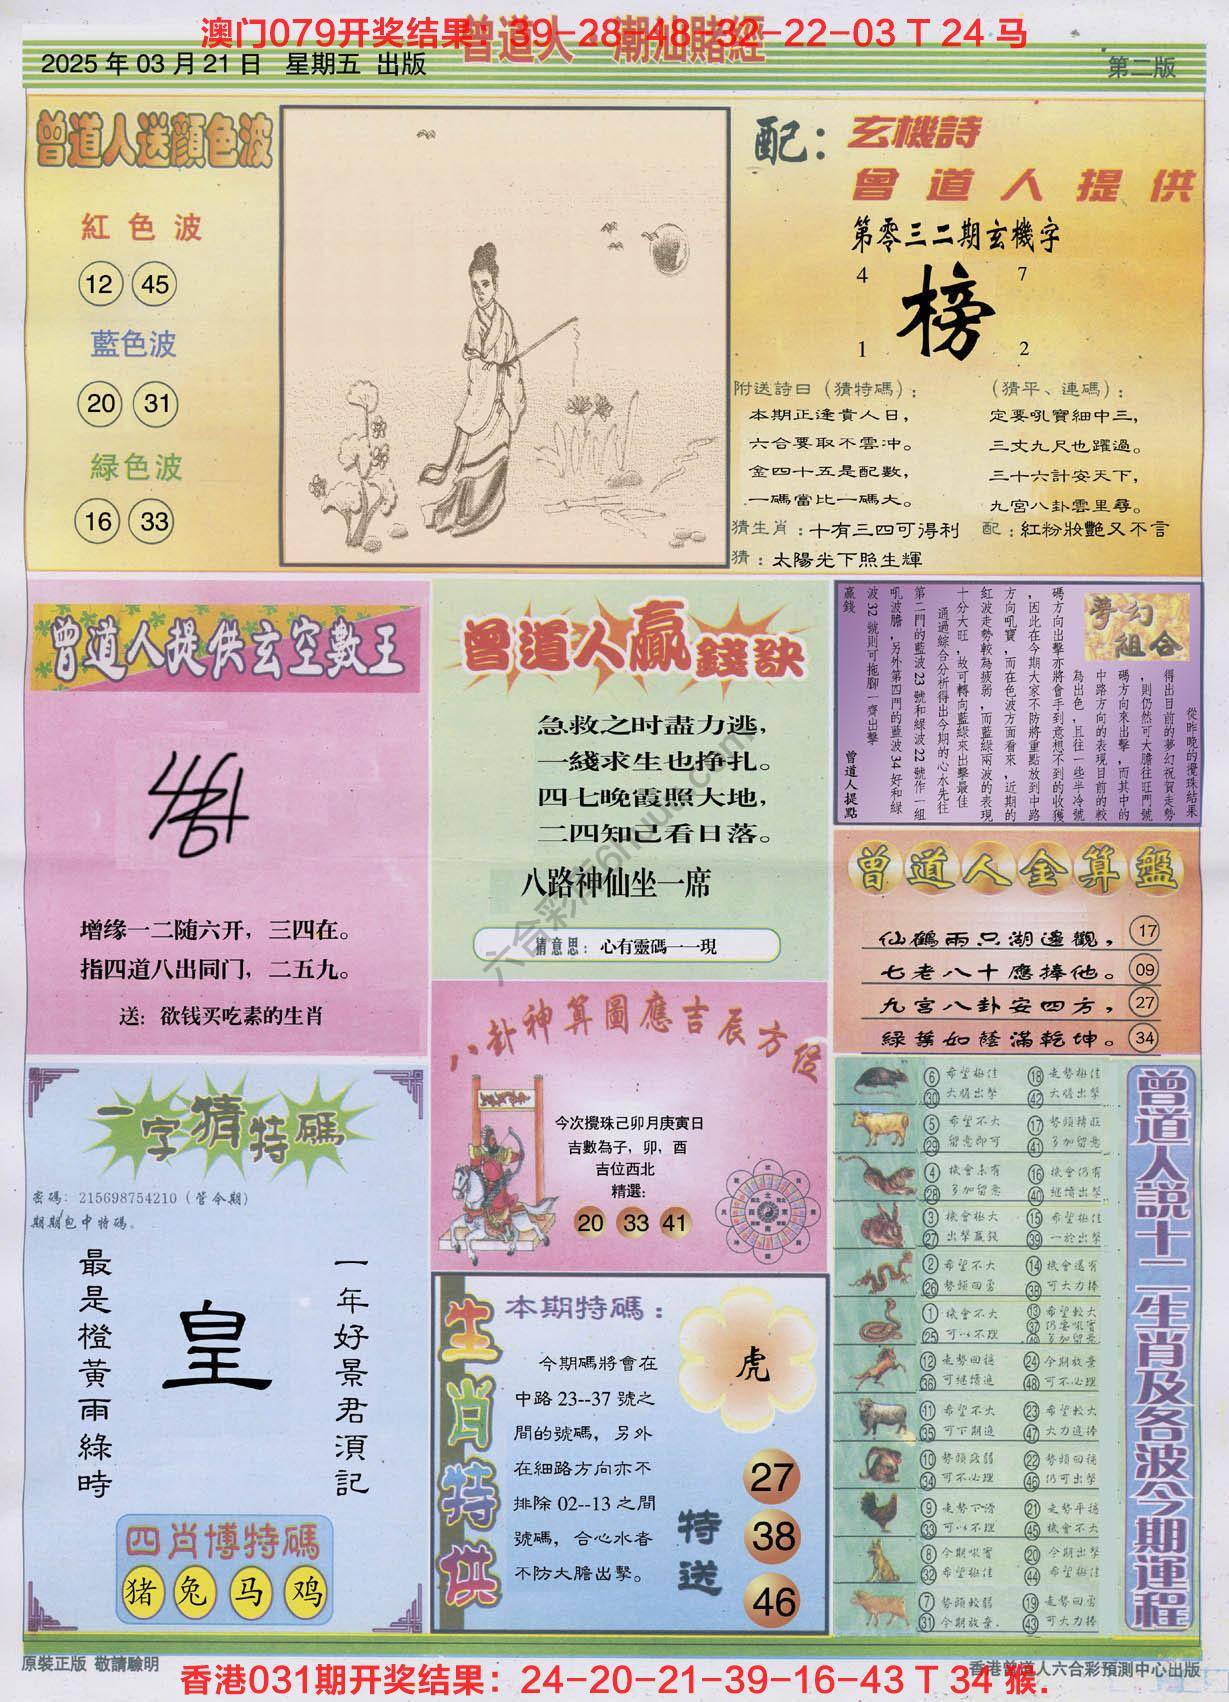 澳门079开奖结果：39-28-48-32-22-03 T 24 马
曾道人 潮汕賭經
2025 年 03 月 21 日 星期五 出版
第二版
曾道人送顏色波
紅色波
12 45
藍色波
20 31
緑色波
16 33
配：玄機詩
曾道人提供
第零三二期玄機字
4 7
榜
1 2
附送詩曰（猜特碼）：
本期正逢貴人日，
六合要取不雲冲。
金四十五是配數，
一碼當比一碼大。
（猜平、連碼）：
定要吼實細中三，
三丈九尺也躍過。
三十六計安天下，
九宮八卦雲里尋。
猜生肖：十有三四可得利 配：紅粉妝艷又不言
猜：太陽光下照生輝
曾道人提供玄空數王
增缘一二随六开，三四在。
指四道八出同门，二五九。
送：欲钱买吃素的生肖
曾道人贏錢訣
急救之时盡力逃，
一綫求生也挣扎。
四七晚霞照大地，
二四知己看日落。
八路神仙坐一席
猜意思：心有靈碼一一現
夢幻組合
從昨晚的攪珠結果
得出目前的夢幻祝賀走勢
，則仍然可大膽往旺門號
碼方向來出擊，而其中的
中路方向的表現目前的較
為出色，且往一些半冷號
碼方向出擊亦將會手到意想不到的收獲
，因此在今期大家不防將重點放到中路
方向吼寶，而在色波方面看來，近期的
紅波走勢較為疲弱，而藍綠兩波的表現
十分大旺，故可轉向藍綠來出擊最佳
通過綜合分析得出今期的心水先往
第二門的藍波 23 號和綠波 22 號作一組
吼波膽，另外第四門的藍波 34 好和綠
波 32 號則可拖腳一齊出擊
贏錢
曾道人提點
曾道人金算盤
仙鶴兩只湖邊觀， 17
七老八十應捧他。 09
九宮八卦安四方， 27
緑葉如蔭滿乾坤。 34
八卦神算圖應吉辰方位
今次攪珠己卯月庚寅日
吉數為子，卯，酉
吉位西北
精選：
20 33 41
一字猜特碼
密碼：215698754210（管令期）
期期包中特碼。
一年好景君須記
皇
最是橙黃雨綠時
四肖博特碼
猪 兔 马 鸡
生肖特供
本期特碼：
今期碼將會在
中路 23--37 號之
間的號碼，另外
在細路方向亦不
排除 02--13 之間
號碼，合心水者
不防大膽出擊。
虎
特送
27
38
46
曾道人説十二生肖及各波今期運程
6 希望極佳 18 走勢極佳
30 大膽出擊 42 大膽出擊
5 希望不大 17 勢頭轉旺
29 留意即可 41 多加留意
4 機會未有 16 機會仍有
28 多加留意 40 繼續出擊
3 機會極大 15 希望極佳
27 出擊贏錢 39 一於出擊
2 希望不大 14 機會還有
26 勢頭回勇 38 可大力捧
1 機會不大 13 希望較大
25 可以不理 37
49 多加留意
12 走勢回穩 24 今期放棄
36 可繼續追 48 可不必理
11 希望不大 23 希望較大
35 可下期追 47 大力追捧
10 勢頭疲弱 22 勢頭回穩
34 可不必理 46 仍可出擊
9 走勢下滑 21 走勢平穩
33 可以不理 45 機會不大
8 今期吼實 20 今期出擊
32 希望極佳 44 希望極佳
7 勢頭較弱 19 走勢回勇
31 今期放棄. 43 可大力捧
六合彩库6hhuu.com
原裝正版 敬請驗明
香港曾道人六合彩預測中心出版
香港031期开奖结果：24-20-21-39-16-43 T 34 猴.